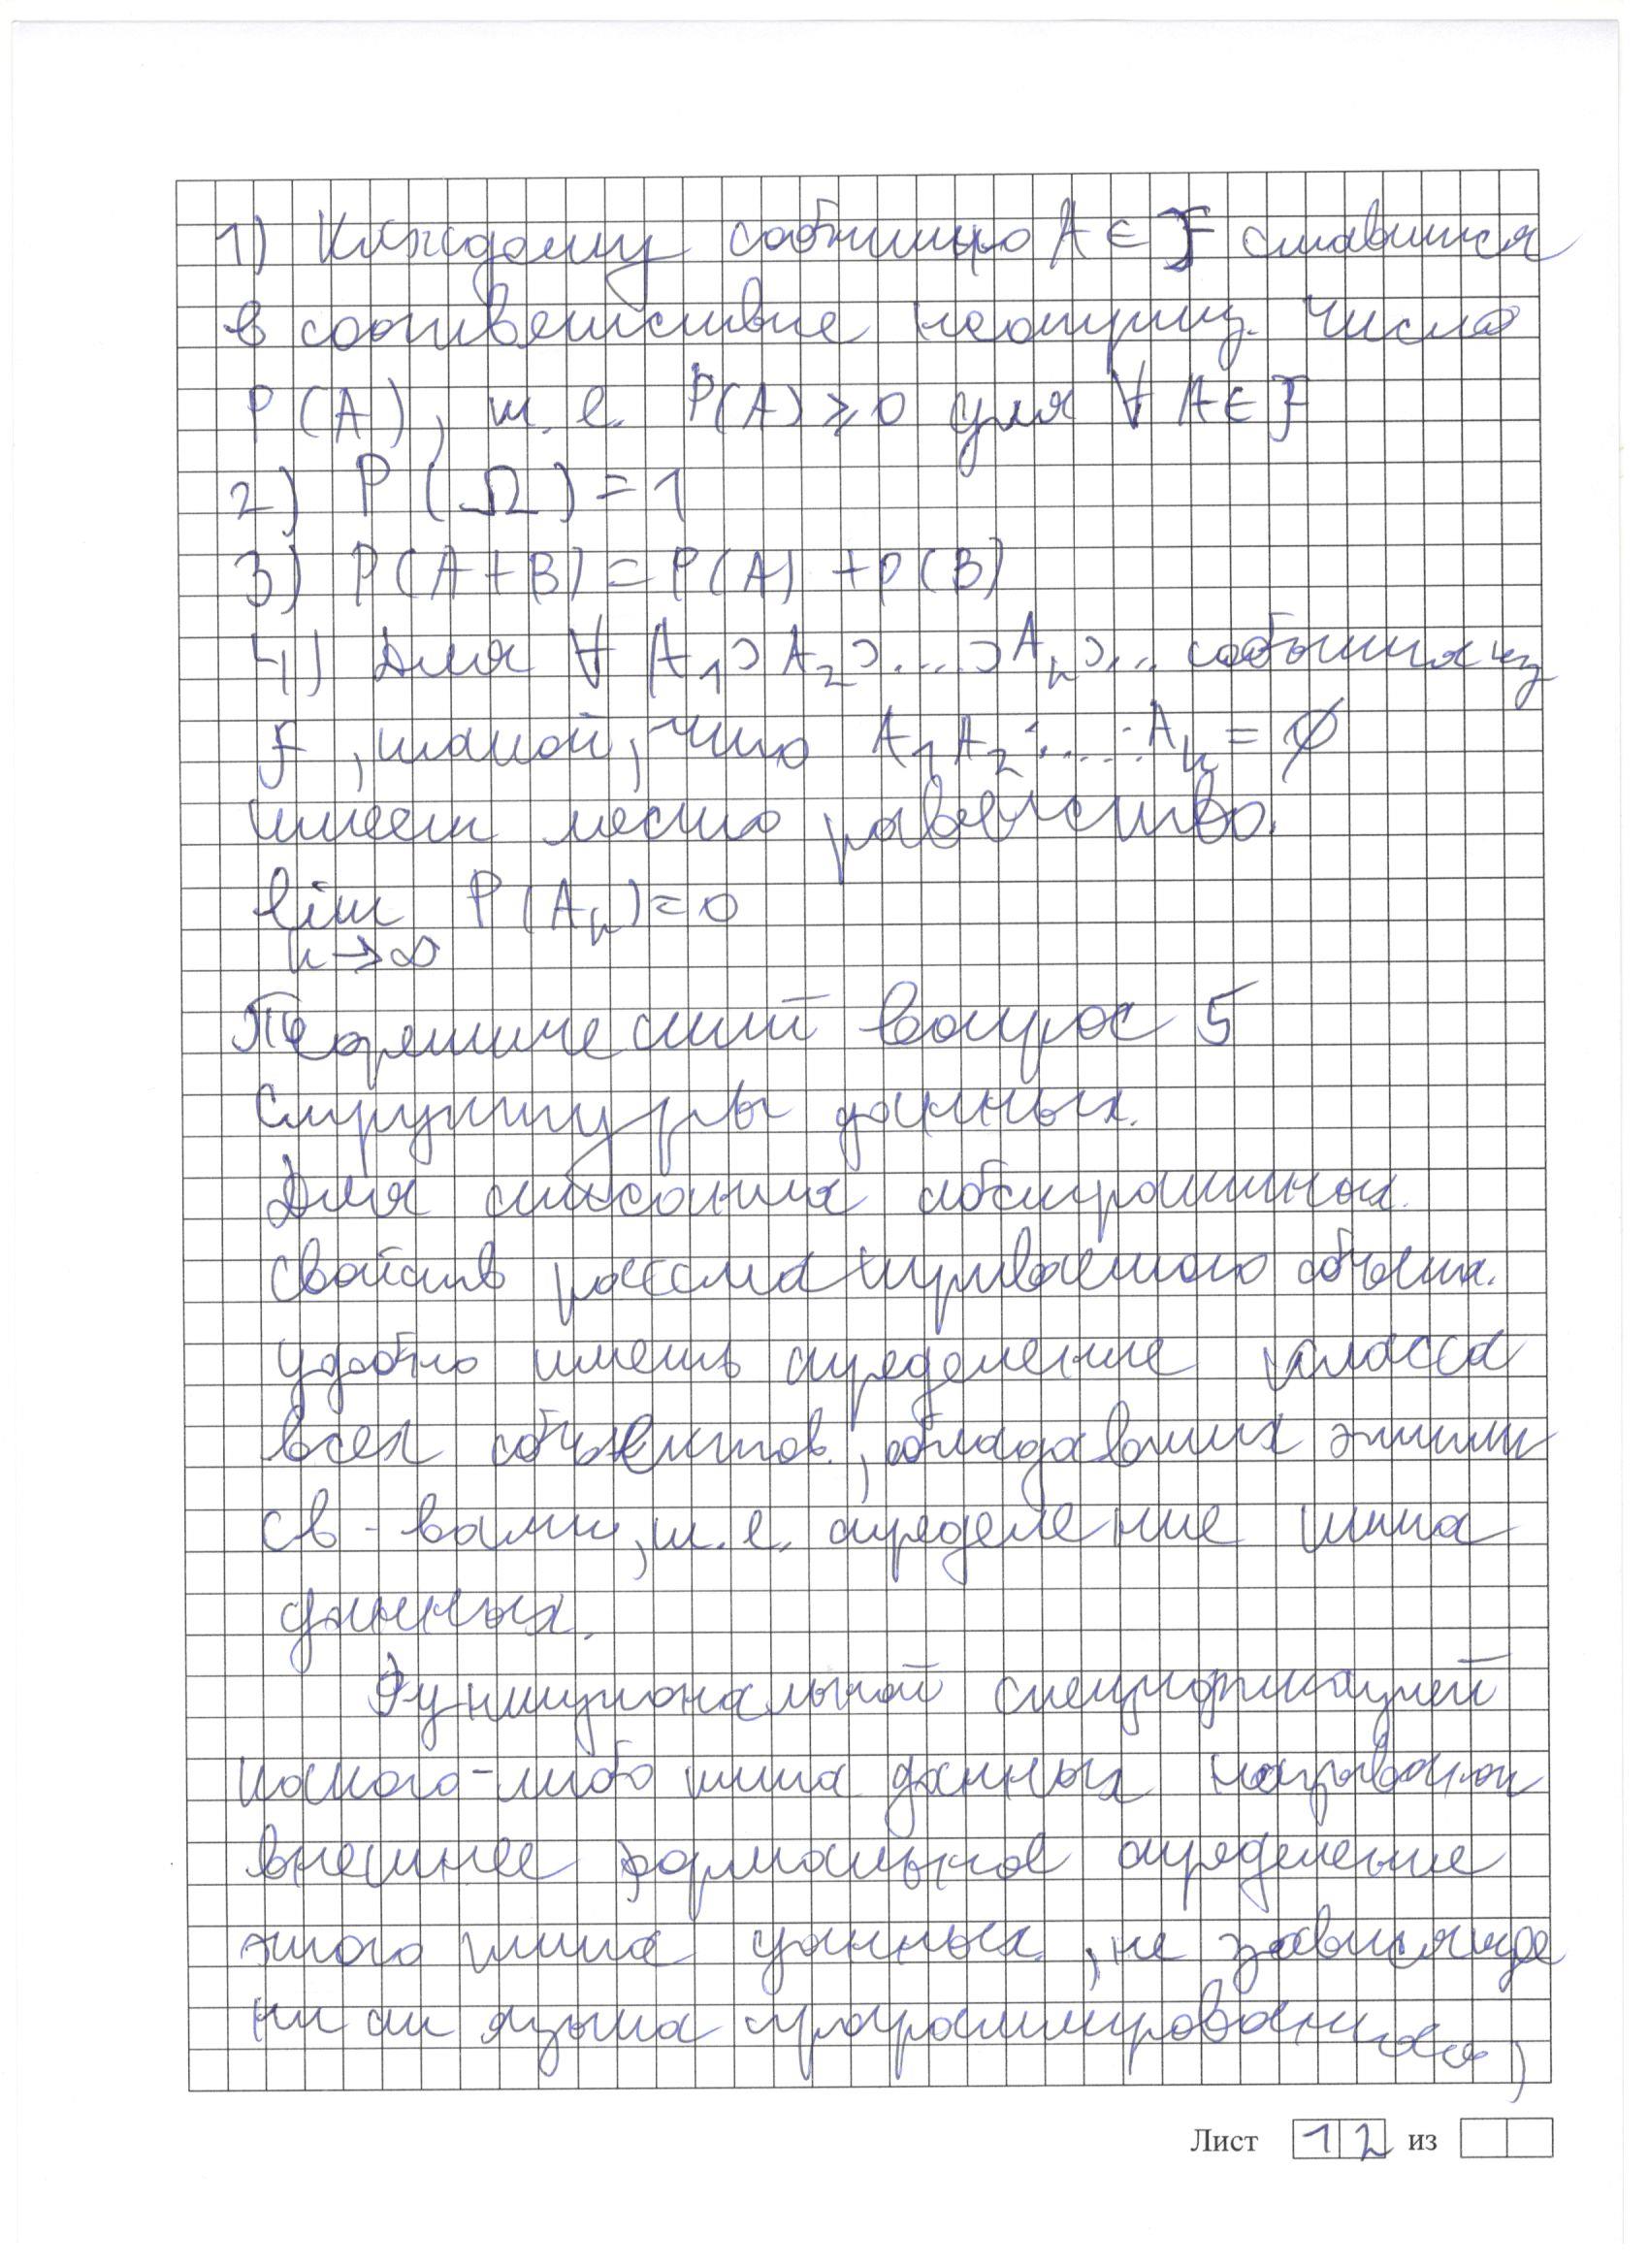 1) Каждому событию A ∈ F ставится
в соответствие неотриц. число
P(A), т. е. P(A) ⩾ 0 для ∀ A ∈ F
2) P(Ω) = 1
3) P(A+B) = P(A) + P(B)
4) Для ∀ A₁⊃A₂⊃....⊃Aₙ⊃... события из
F, такой, что A₁A₂·....·Aₙ = ∅
имеет место равенство.
lim P(Aₙ) = 0
n→∞
Теоретический вопрос 5
Структуры данных.
Для описания абстрактных
свойств рассматриваемого объекта.
удобно иметь определение класса
всех объектов, обладавших этими
св-вами, т.е. определение типа
данных.
Функциональной спецификацией
какого-либо типа данных называют
внешнее формальное определение
этого типа данных, не зависящее
ни от языка программирования,
Лист 12 из